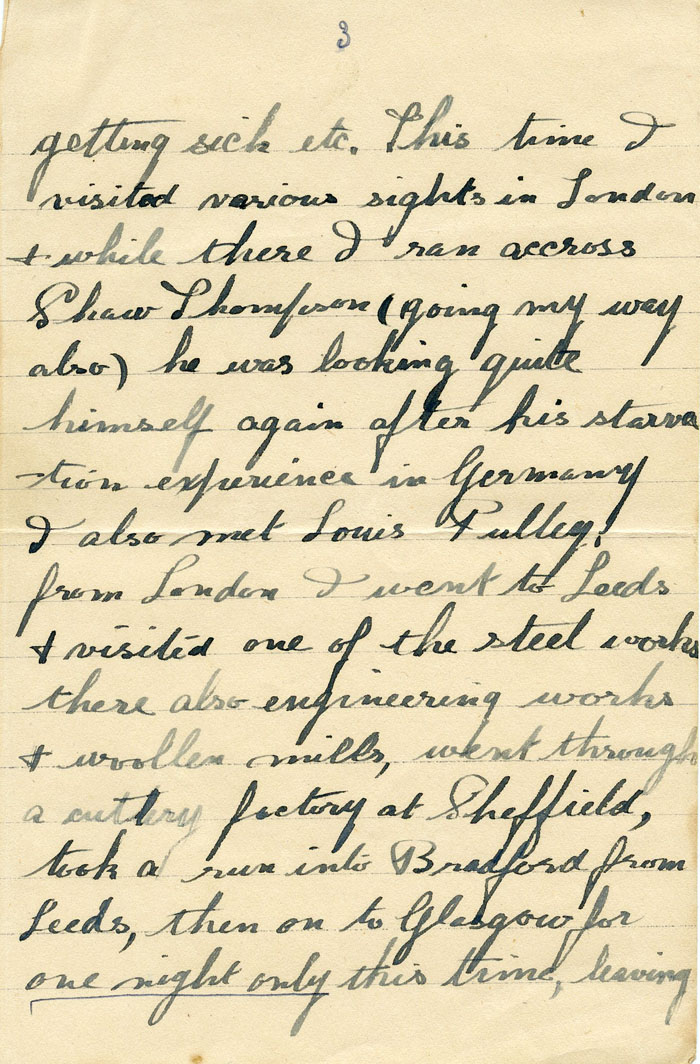 3
getting sick etc. This time I
visited various sights in London
+ while there I ran accross
Shaw Thompson (going my way
also) he was looking quite
himself again after his starva
-tion experience in Germany
I also met Louis Pulley.
from London I went to Leeds
+ visited one of the steel works
there also engineering works
+ woollen mills, went through
a cutlery factory at Sheffield,
took a run into Bradford from
Leeds, then on to Glasgow for
one night only this time, leaving